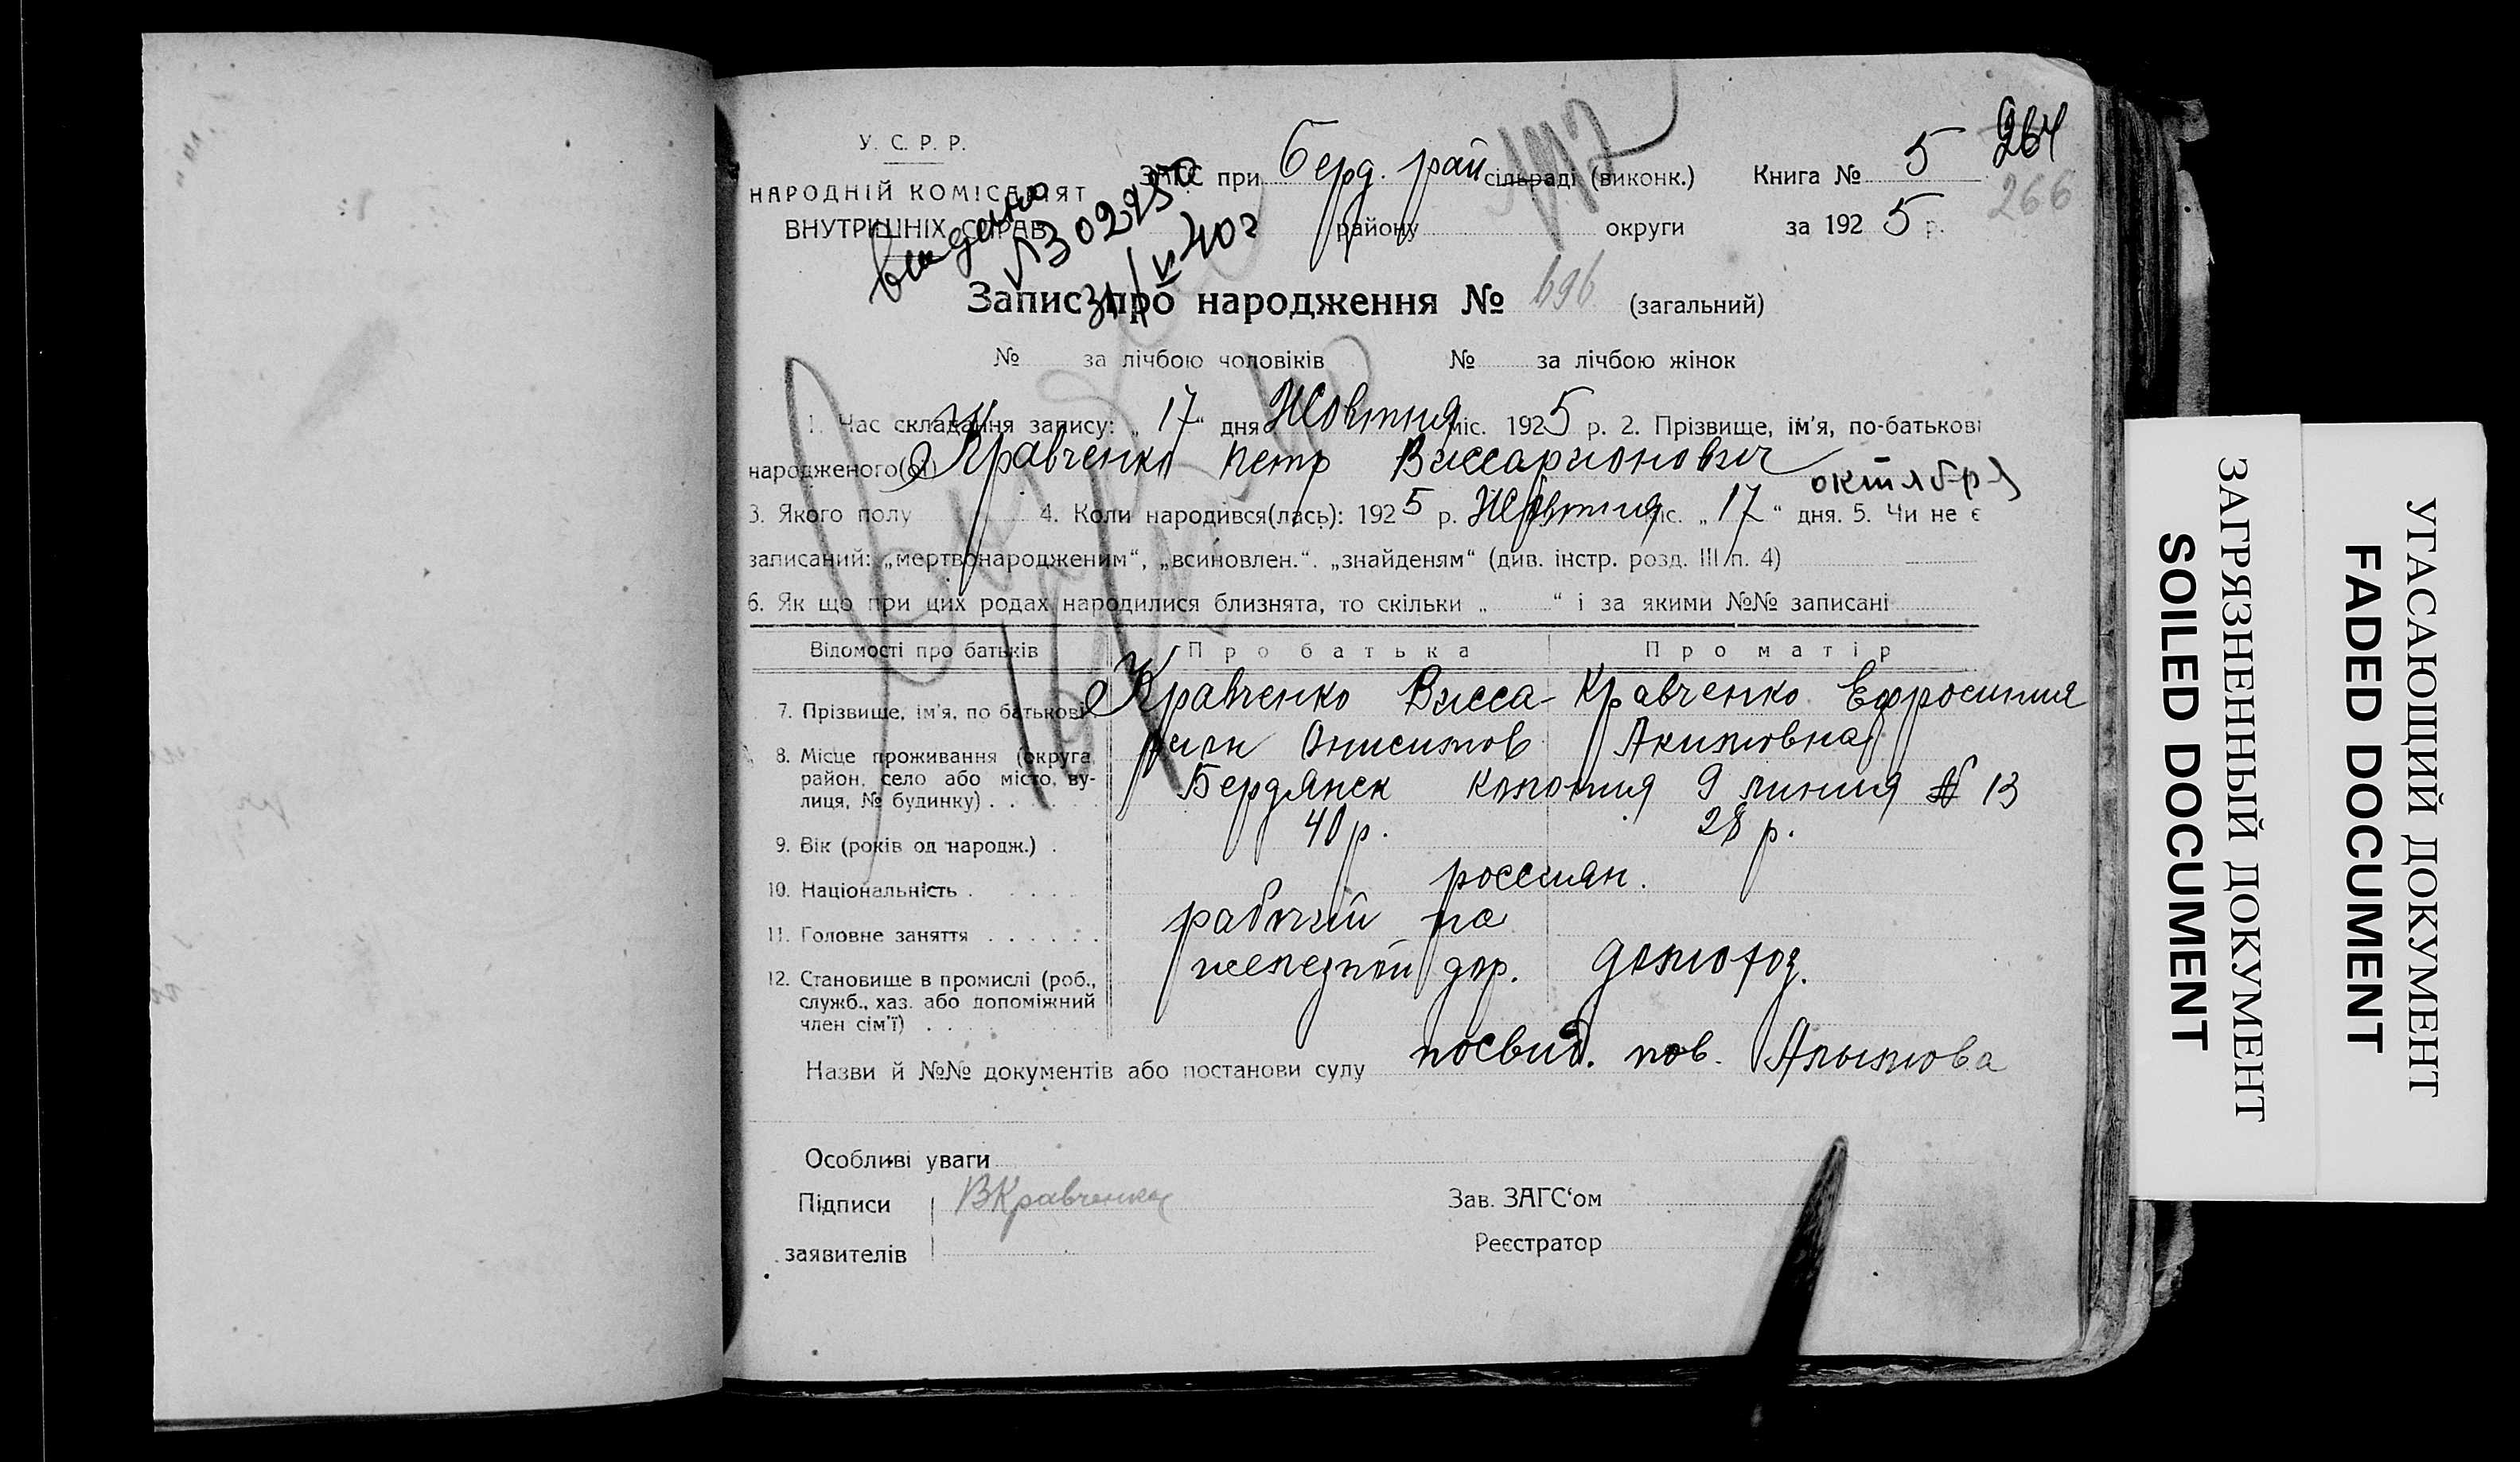 У. С. Р. Р.
НАРОДНІЙ КОМІСАРІЯТ
ВНУТРІШНІХ СПРАВ
видано
ЗАГС при Берд. рай сільраді (виконк.)
району округи
Книга № 5
за 192 5 р.
264
266
Запис про народження № 696 (загальний)
№ за лічбою чоловіків № за лічбою жінок
1. Час складання запису: „ 17 “ дня Жовтня міс. 192 5 р. 2. Прізвище, ім'я, по-батькові
народженого(ої) Кравченко Петр Виссарионович
октября
3. Якого полу 4. Коли народився(лась): 192 5 р. Жовтня міс. „ 17 “ дня. 5. Чи не є
записаний: „мертвонародженим“, „всиновлен.“. „знайденям“ (див. інстр. розд. III п. 4)
6. Як що при цих родах народилися близнята, то скільки „ “ і за якими №№ записані
Відомості про батьків Про батька Про матір
7. Прізвище, ім'я, по батькові Кравченко Висса- Кравченко Ефросиния
рион Анисимов Акимовна
8. Місце проживання (округа,
район, село або місто, ву-
лиця, № будинку) . . . Бердянск колония 9 линия № 13
9. Вік (років од народж.) . 40 р. 28 р.
10. Національність . . . . россиян.
11. Головне заняття . . . . . . рабочий на
железной дор. домохоз.
12. Становище в промислі (роб.,
служб., хаз. або допоміжний
член сім'ї) . . . .
Назви й №№ документів або постанови суду посвид. пов. Алымова
Особливі уваги
Підписи
заявителів
ВКравченко
Зав. ЗАГС‘ом
Реєстратор
ЗАГРЯЗНЕННЫЙ ДОКУМЕНТ
SOILED DOCUMENT
УГАСАЮЩИЙ ДОКУМЕНТ
FADED DOCUMENT